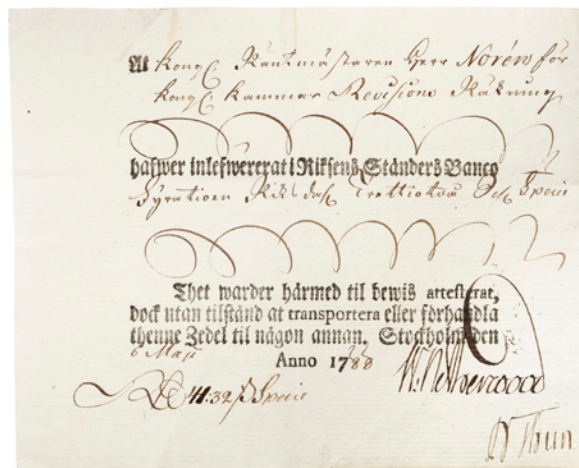 At Kongl. Räntmästaren Herr Norén för
Kongl. Kammar Revisions Räkning
hafwer inlefwererat i Riksens Ständers Banco
Fyratioen Riksdal. Trettiotvå Sch. Specie
Thet warder härmed til bewis attesterat,
dock utan tilstånd at transportera eller förhandla
thenne Zedel til någon annan. Stockholm den
6 Maji Anno 1788
41:32 Specie
W: Netherwood
Thun